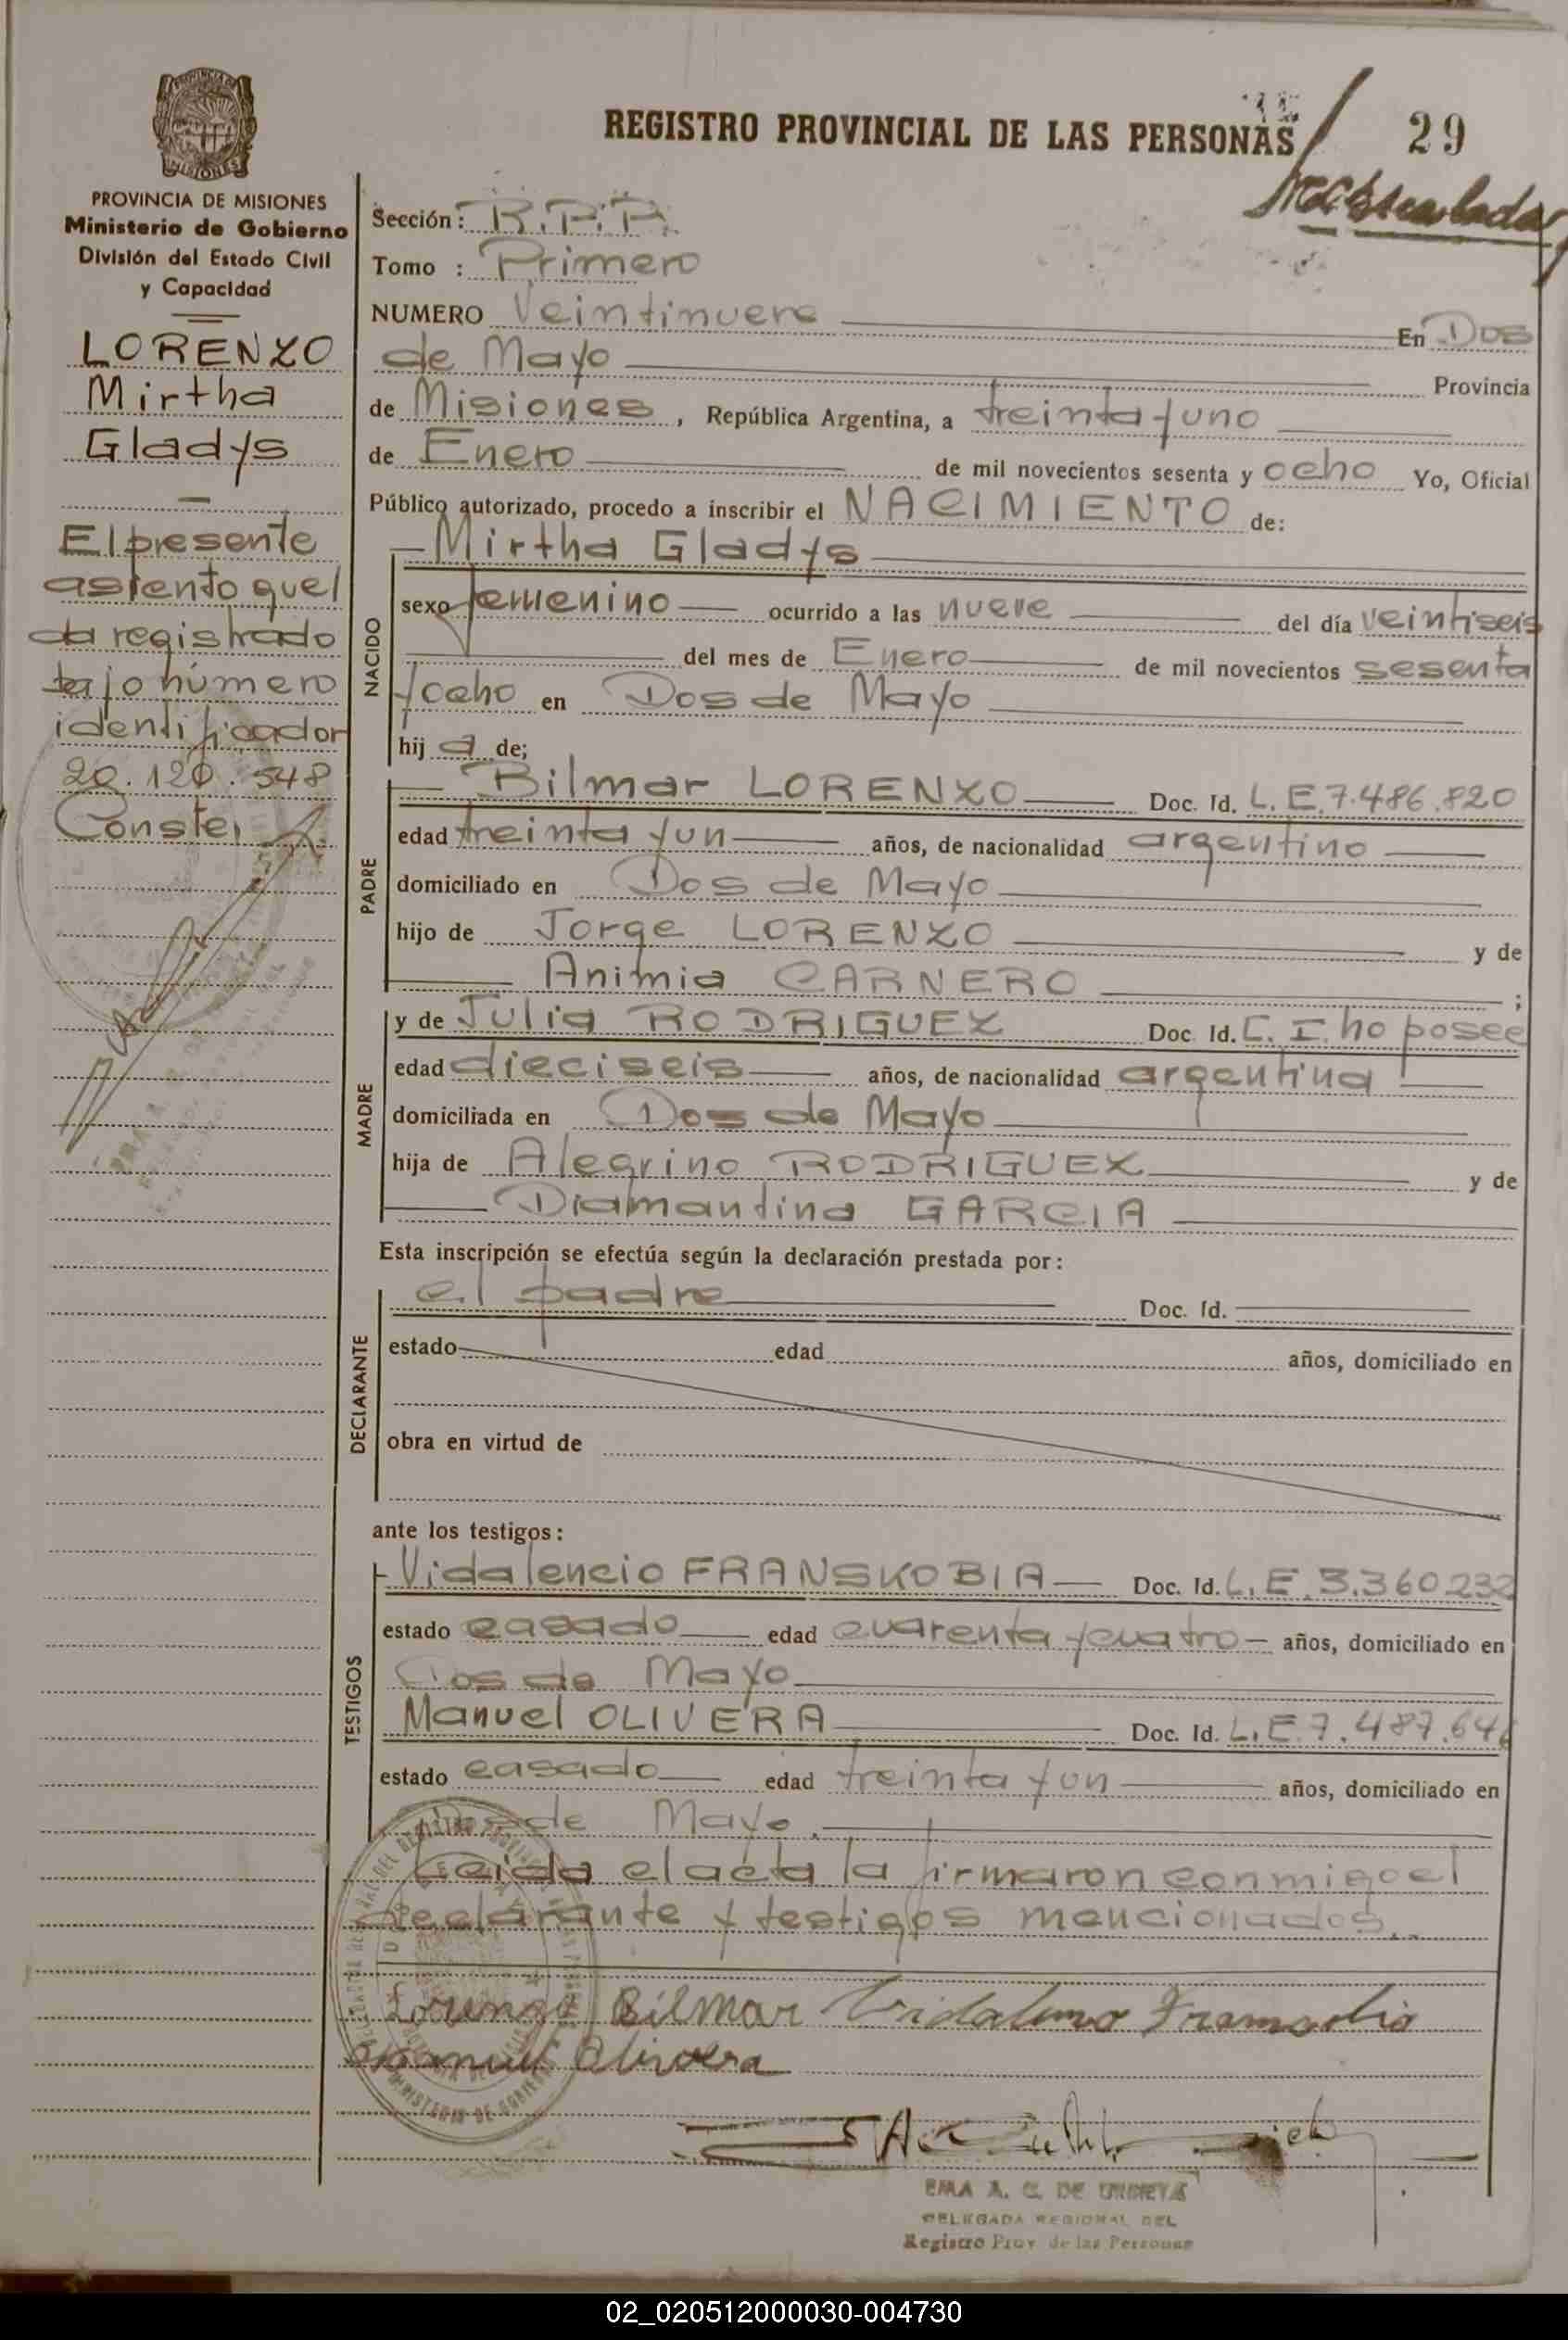 REGISTRO PROVINCIAL DE LAS PERSONAS
29
PROVINCIA DE MISIONES
Ministerio de Gobierno
División del Estado Civil
y Capacidad
LORENZO
Mirtha
Gladys
El presente
asiento que
da registrado
bajo número
identificador
20.120.548
Conste,
Sección: R.P.P.
Tomo : Primero
NUMERO Veintinueve En Dos
de Mayo Provincia
de Misiones, República Argentina, a treinta y uno
de Enero de mil novecientos sesenta y ocho Yo, Oficial
Público autorizado, procedo a inscribir el NACIMIENTO de:
NACIDO
Mirtha Gladys
sexo femenino ocurrido a las nueve del día veintiseis
del mes de Enero de mil novecientos sesenta
y ocho en Dos de Mayo
hij a de;
PADRE
Bilmar LORENZO Doc. Id. L.E.7.486.820
edad treinta y un años, de nacionalidad argentino
domiciliado en Dos de Mayo
hijo de Jorge LORENZO y de
Animia CARNERO ;
MADRE
y de Julia RODRIGUEZ Doc. Id. C.I. no posee
edad dieciseis años, de nacionalidad argentina
domiciliada en Dos de Mayo
hija de Alegrino RODRIGUEZ y de
Diamantina GARCIA
Esta inscripción se efectúa según la declaración prestada por:
DECLARANTE
el padre Doc. Id.
estado edad años, domiciliado en
obra en virtud de
ante los testigos:
TESTIGOS
Vidalencio FRANSKOBIA Doc. Id. L.E. 3.360.232
estado casado edad cuarenta y cuatro años, domiciliado en
Dos de Mayo
Manuel OLIVERA Doc. Id. L.E.7.487.646
estado casado edad treinta y un años, domiciliado en
Dos de Mayo.
Leida el acta la firmaron conmigo el
declarante y testigos mencionados.
Lorenzo Bilmar
Manuel Olivera
DELEGADA REGIONAL DEL
Registro Prov. de las Personas
02_020512000030-004730